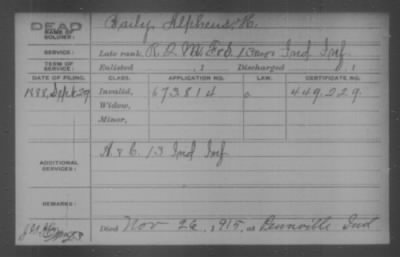 DEAD
NAME OF SOLDIER:
Baily, Alpheus K.
SERVICE:
Late rank, R.Q.M. F&S 13 Ind Inf.
TERM OF SERVICE:
Enlisted , 1 Discharged , 1
DATE OF FILING. CLASS. APPLICATION NO. LAW. CERTIFICATE NO.
1888, Sept 29 Invalid, 673814 449.229
Widow,
Minor,
ADDITIONAL SERVICES:
H & C. 13 Ind Inf
REMARKS:
Died Nov 26, 1915, at Pennville Ind